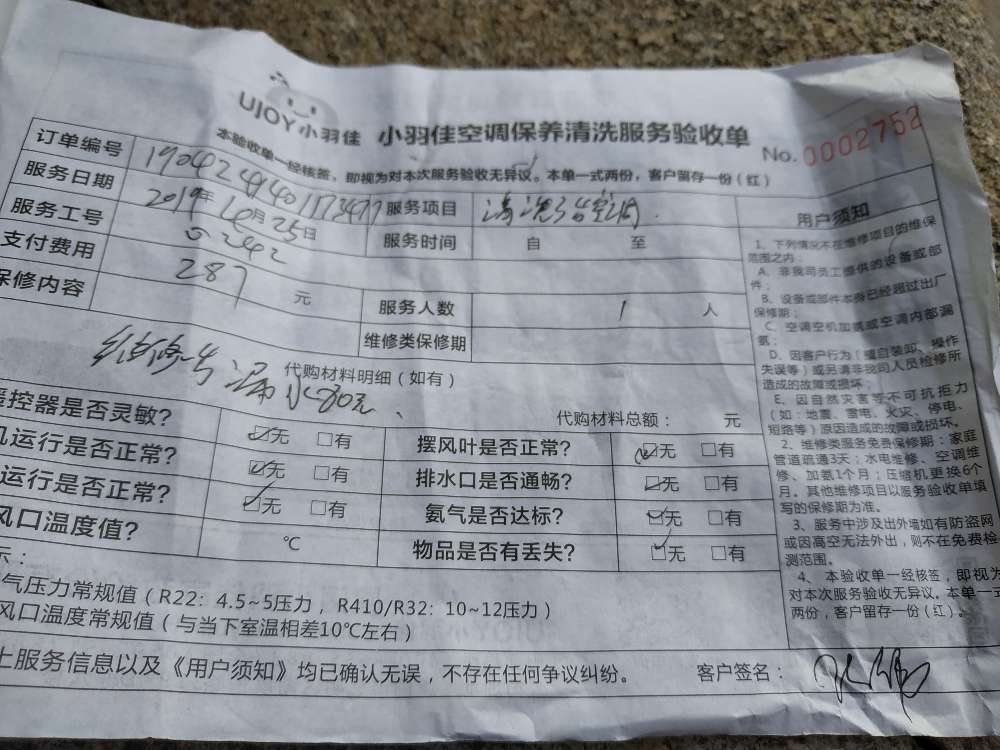 UJOY小羽佳 小羽佳空调保养清洗服务验收单
No. 0002752
本验收单一经核签，即视为对本次服务验收无异议。本单一式两份，客户留存一份（红）
订单编号
服务日期 2019年4月25日 服务项目
服务工号 0242 服务时间 自 至
支付费用 287 元 服务人数 1 人
保修内容 维修类保修期
代购材料明细（如有）
漏水80元、
代购材料总额： 元
控器是否灵敏? ☑无 □有 摆风叶是否正常? ☑无 □有
机运行是否正常? ☑无 □有 排水口是否通畅? ☑无 □有
运行是否正常? ☑无 □有 氨气是否达标? ☑无 □有
风口温度值? ℃ 物品是否有丢失? ☑无 □有
示：
气压力常规值（R22：4.5~5压力，R410/R32：10~12压力）
风口温度常规值（与当下室温相差10℃左右）
上服务信息以及《用户须知》均已确认无误，不存在任何争议纠纷。 客户签名：
用户须知
1、下列情况不在维修项目的维保
范围之内：
A、非我司员工提供的设备或部
件；
B、设备或部件本身已经超过出厂
保修期；
C、空调空机加氨或空调内部漏
氨；
D、因客户行为（擅自装卸、操作
失误等）或另请非我司人员检修所
造成的故障或损坏；
E、因自然灾害等不可抗拒力
（如：地震、雷电、火灾、停电、
短路等）原因造成的故障或损坏。
2、维修类服务免费保修期：家庭
管道疏通3天；水电维修、空调维
修、加氨1个月；压缩机更换6个
月。其他维修项目以服务验收单填
写的保修期为准。
3、服务中涉及出外墙如有防盗网
或因高空无法外出，则不在免费检
测范围。
4、本验收单一经核签，即视为
对本次服务验收无异议。本单一式
两份，客户留存一份（红）。